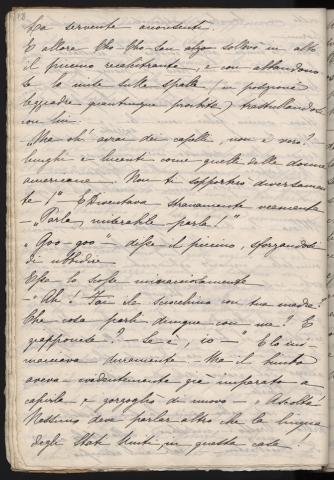 18
La servente acconsente.
E allora Cho-Cho-San alzò sollevò in alto
il piccino recalcitrante, e con abbandono
te la teste sulle spalle (in posizione
leggiadra quantunque prostrata) trastullandosi
con lui.
"Ma oh! avrai dei capelli, non è vero?-
lunghi e lucenti come quelli delle donne
americane - Non ti sopporterò diversamen-
te!" E Diventava stranamente veemente
- "Parla, miserabile parla!"
"Goo-goo" - disse il piccino, sforzandosi
di ubbidire
Essa lo scosse minacciosamente
- "Ah! Fai lo con tua madre?
Che cosa parli dunque con me? È
giapponese? - Se è, io -" E lo mi-
nacciava duramente - Ma il bimbo
aveva evidentemente già imparato a
capirla e gorgogliò di nuovo - "Ascolta!
Nessuno deve parlar altro che la lingua
degli Stati Uniti, in questa casa!